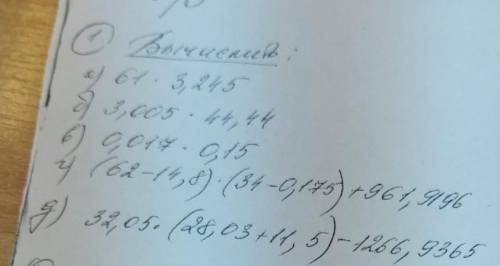 ① Вычислить:
а) 61 · 3,245
б) 3,005 · 44,44
в) 0,017 · 0,15
г) (62-14,8) · (34-0,175)+961,9196
д) 32,05 · (28,03+11,5)-1266,9365